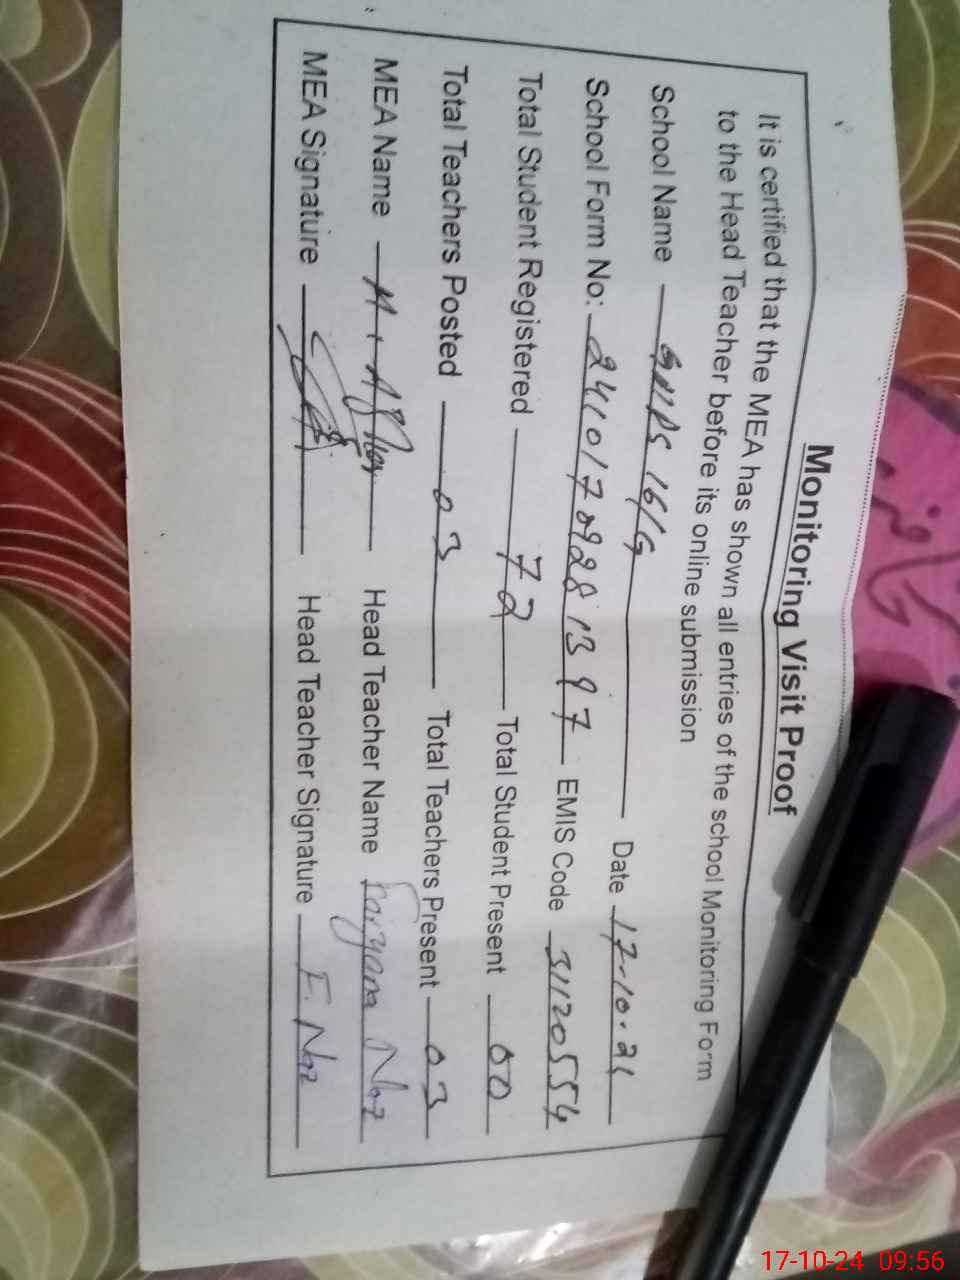 Monitoring Visit Proof
It is certified that the MEA has shown all entries of the school Monitoring Form
to the Head Teacher before its online submission
School Name 16/G Date 17-10-24
School Form No: 24101709281397 EMIS Code 31120554
Total Student Registered 72 Total Student Present 00
Total Teachers Posted 03 Total Teachers Present 03
MEA Name Head Teacher Name Farzana Naz
MEA Signature Head Teacher Signature F. Naz
17-10-24 09:56